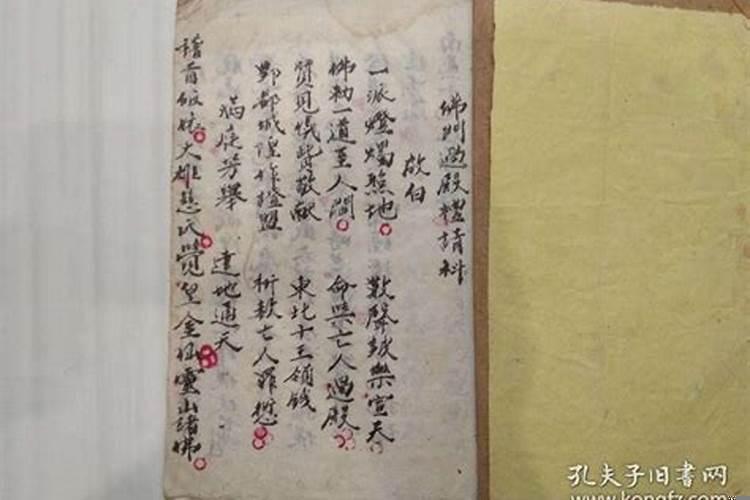 佛門過殿禮請科
啟白
一派燈燭照地 歎聲鼓樂宣天
佛勅一道至人間 命與亡人過殿
賢見儀貲敬献 東北十王領钱
酆都城隍作證盟 祈赦亡人罪愆
滿庭芳舉 達地通天
稽首皈依大雄慈氏覺皇金仙靈山諸佛
孔夫子旧书网
www.kongfz.com